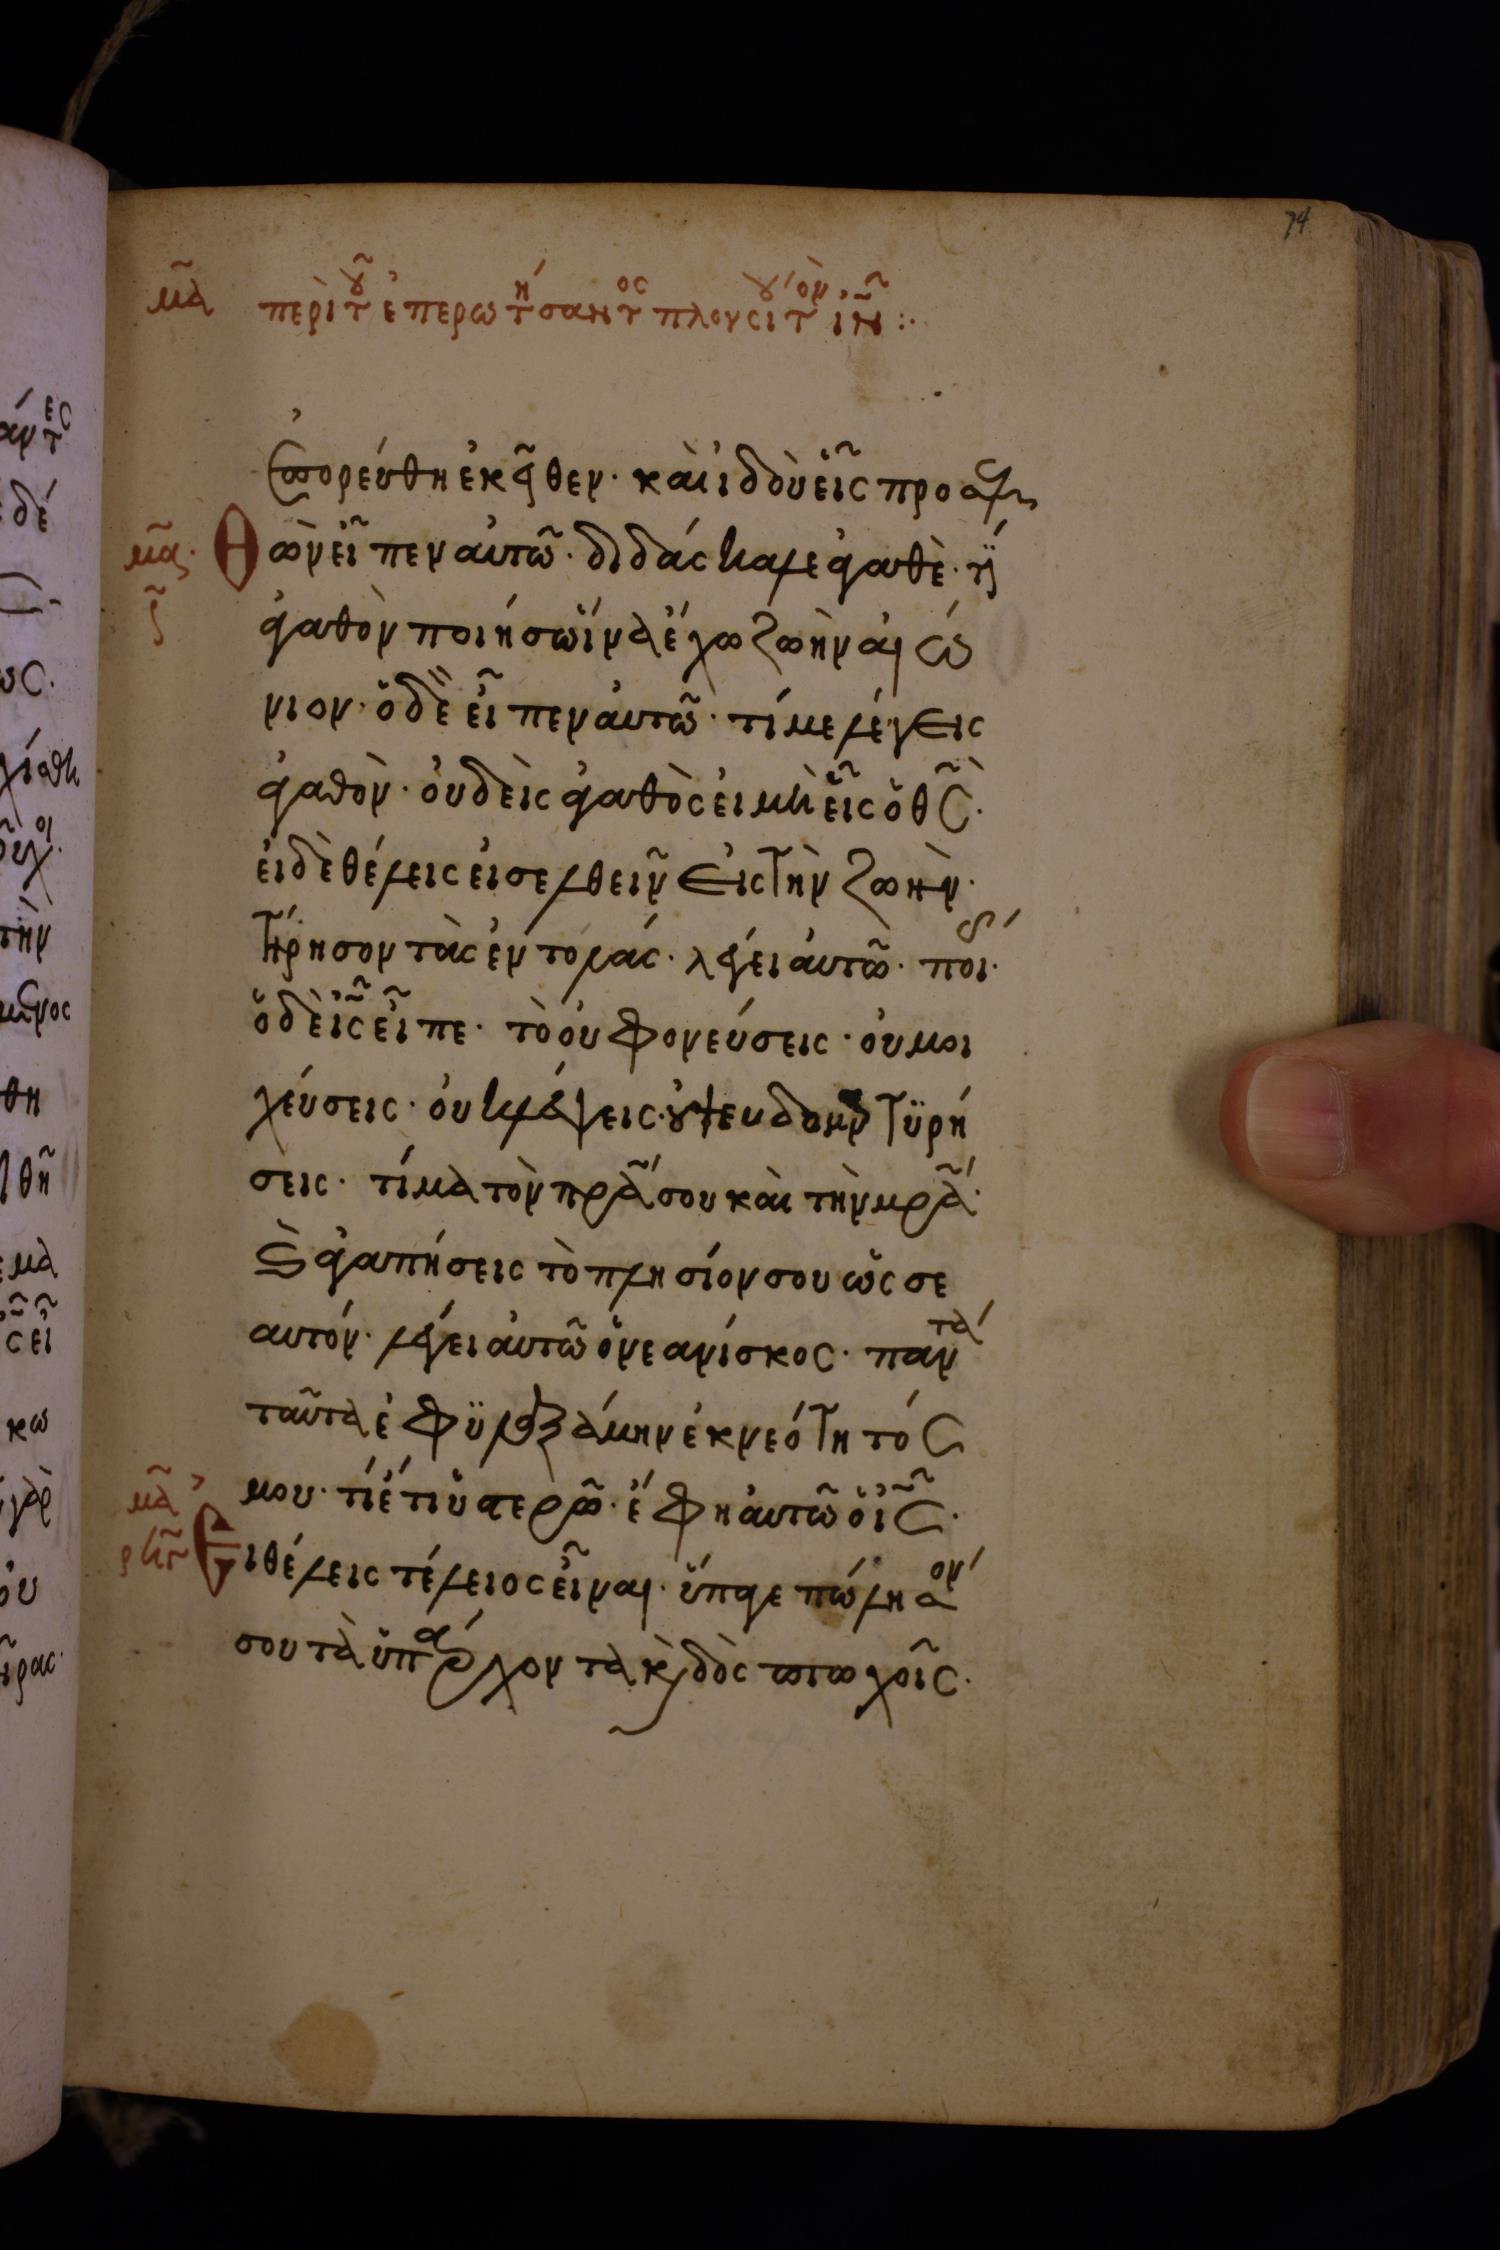 74
μα περὶ τοῦ ἐπερωτήσαντος πλουσίου τὸν ιν̅ :·
ἐπορεύθη ἐκεῖθεν· καὶ ἰδοὺ εἷς προσελ
μα· θὼν εἶπεν αὐτῶ· διδάσκαλε ἀγαθὲ· τί
ἀγαθὸν ποιήσω ἵνα ἔχω ζωὴν αἰώ
νιον· ὁ δὲ εἶπεν αὐτῶ· τί με λέγεις
ἀγαθὸν· οὐδεὶς ἀγαθὸς εἰ μὴ εἷς ὁ θς̅·
εἰ δὲ θέλεις εἰσελθεῖν εἰς τὴν ζωὴν·
τήρησον τὰς ἐντολάς· λέγει αὐτῶ· ποίας·
ὁ δὲ ις̅ εἶπε· τὸ οὐ φονεύσεις· οὐ μοι
χεύσεις· οὐ κλέψεις· οὐ ψευδομαρτϋρή
σεις· τίμα τὸν πρα̅ σου καὶ τὴν μρα̅·
καὶ ἀγαπήσεις τὸ πλησίον σου ὡς σε
αυτόν· λέγει αὐτῶ ὁ νεανίσκος· πάντα
ταῦτα ἐφϋλαξάμην ἐκ νεότητός
μου· τί ἔτι ὑστερῶ· ἔφη αὐτῶ ὁ ις̅·
μα εἰ θέλεις τέλειος εἶναι· ὕπαγε πώλησόν
σου τὰ ὑπάρχοντα καὶ δὸς πτωχοῖς·